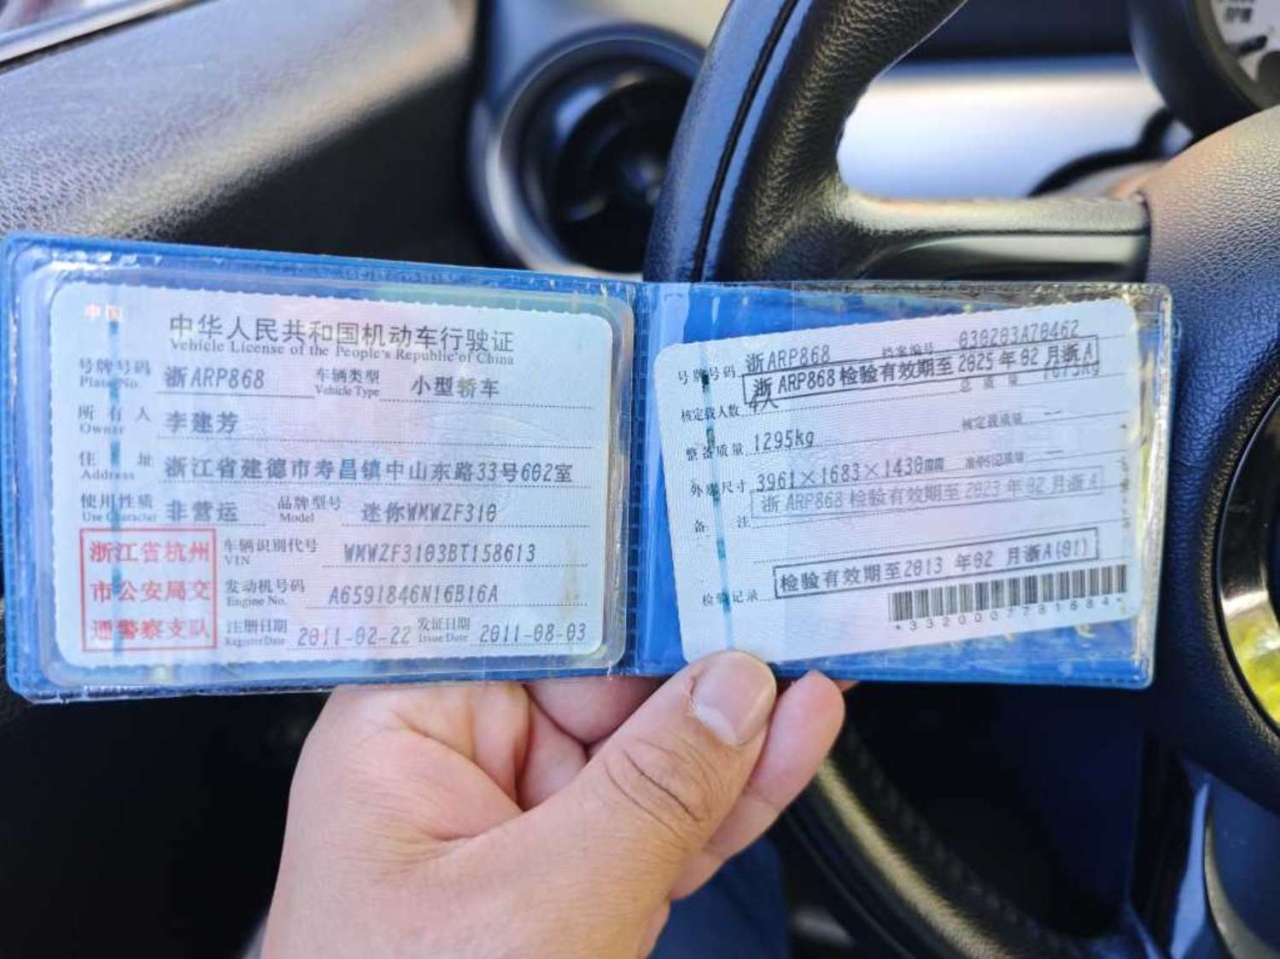 中国
中华人民共和国机动车行驶证
Vehicle License of the People's Republic of China
号牌号码 浙ARP868 车辆类型 小型轿车
Plate No. Vehicle Type
所有人 李建芳
Owner
住址 浙江省建德市寿昌镇中山东路33号602室
Address
使用性质 非营运 品牌型号 迷你WMWZF310
Use Character Model
浙江省杭州
市公安局交
通警察支队
车辆识别代号 WMWZF3103BT158613
VIN
发动机号码 A6591846N16B16A
Engine No.
注册日期 2011-02-22 发证日期 2011-08-03
Register Date Issue Date
号牌号码 浙ARP868 档案编号 030203A70462
浙ARP868检验有效期至2025年02月浙A
核定载人数 4人 总质量
整备质量 1295kg 核定载质量 --
外廓尺寸 3961×1683×1430mm 准牵引总质量 --
浙ARP868检验有效期至2023年02月浙A
备注
检验有效期至2013年02月浙A(01)
检验记录